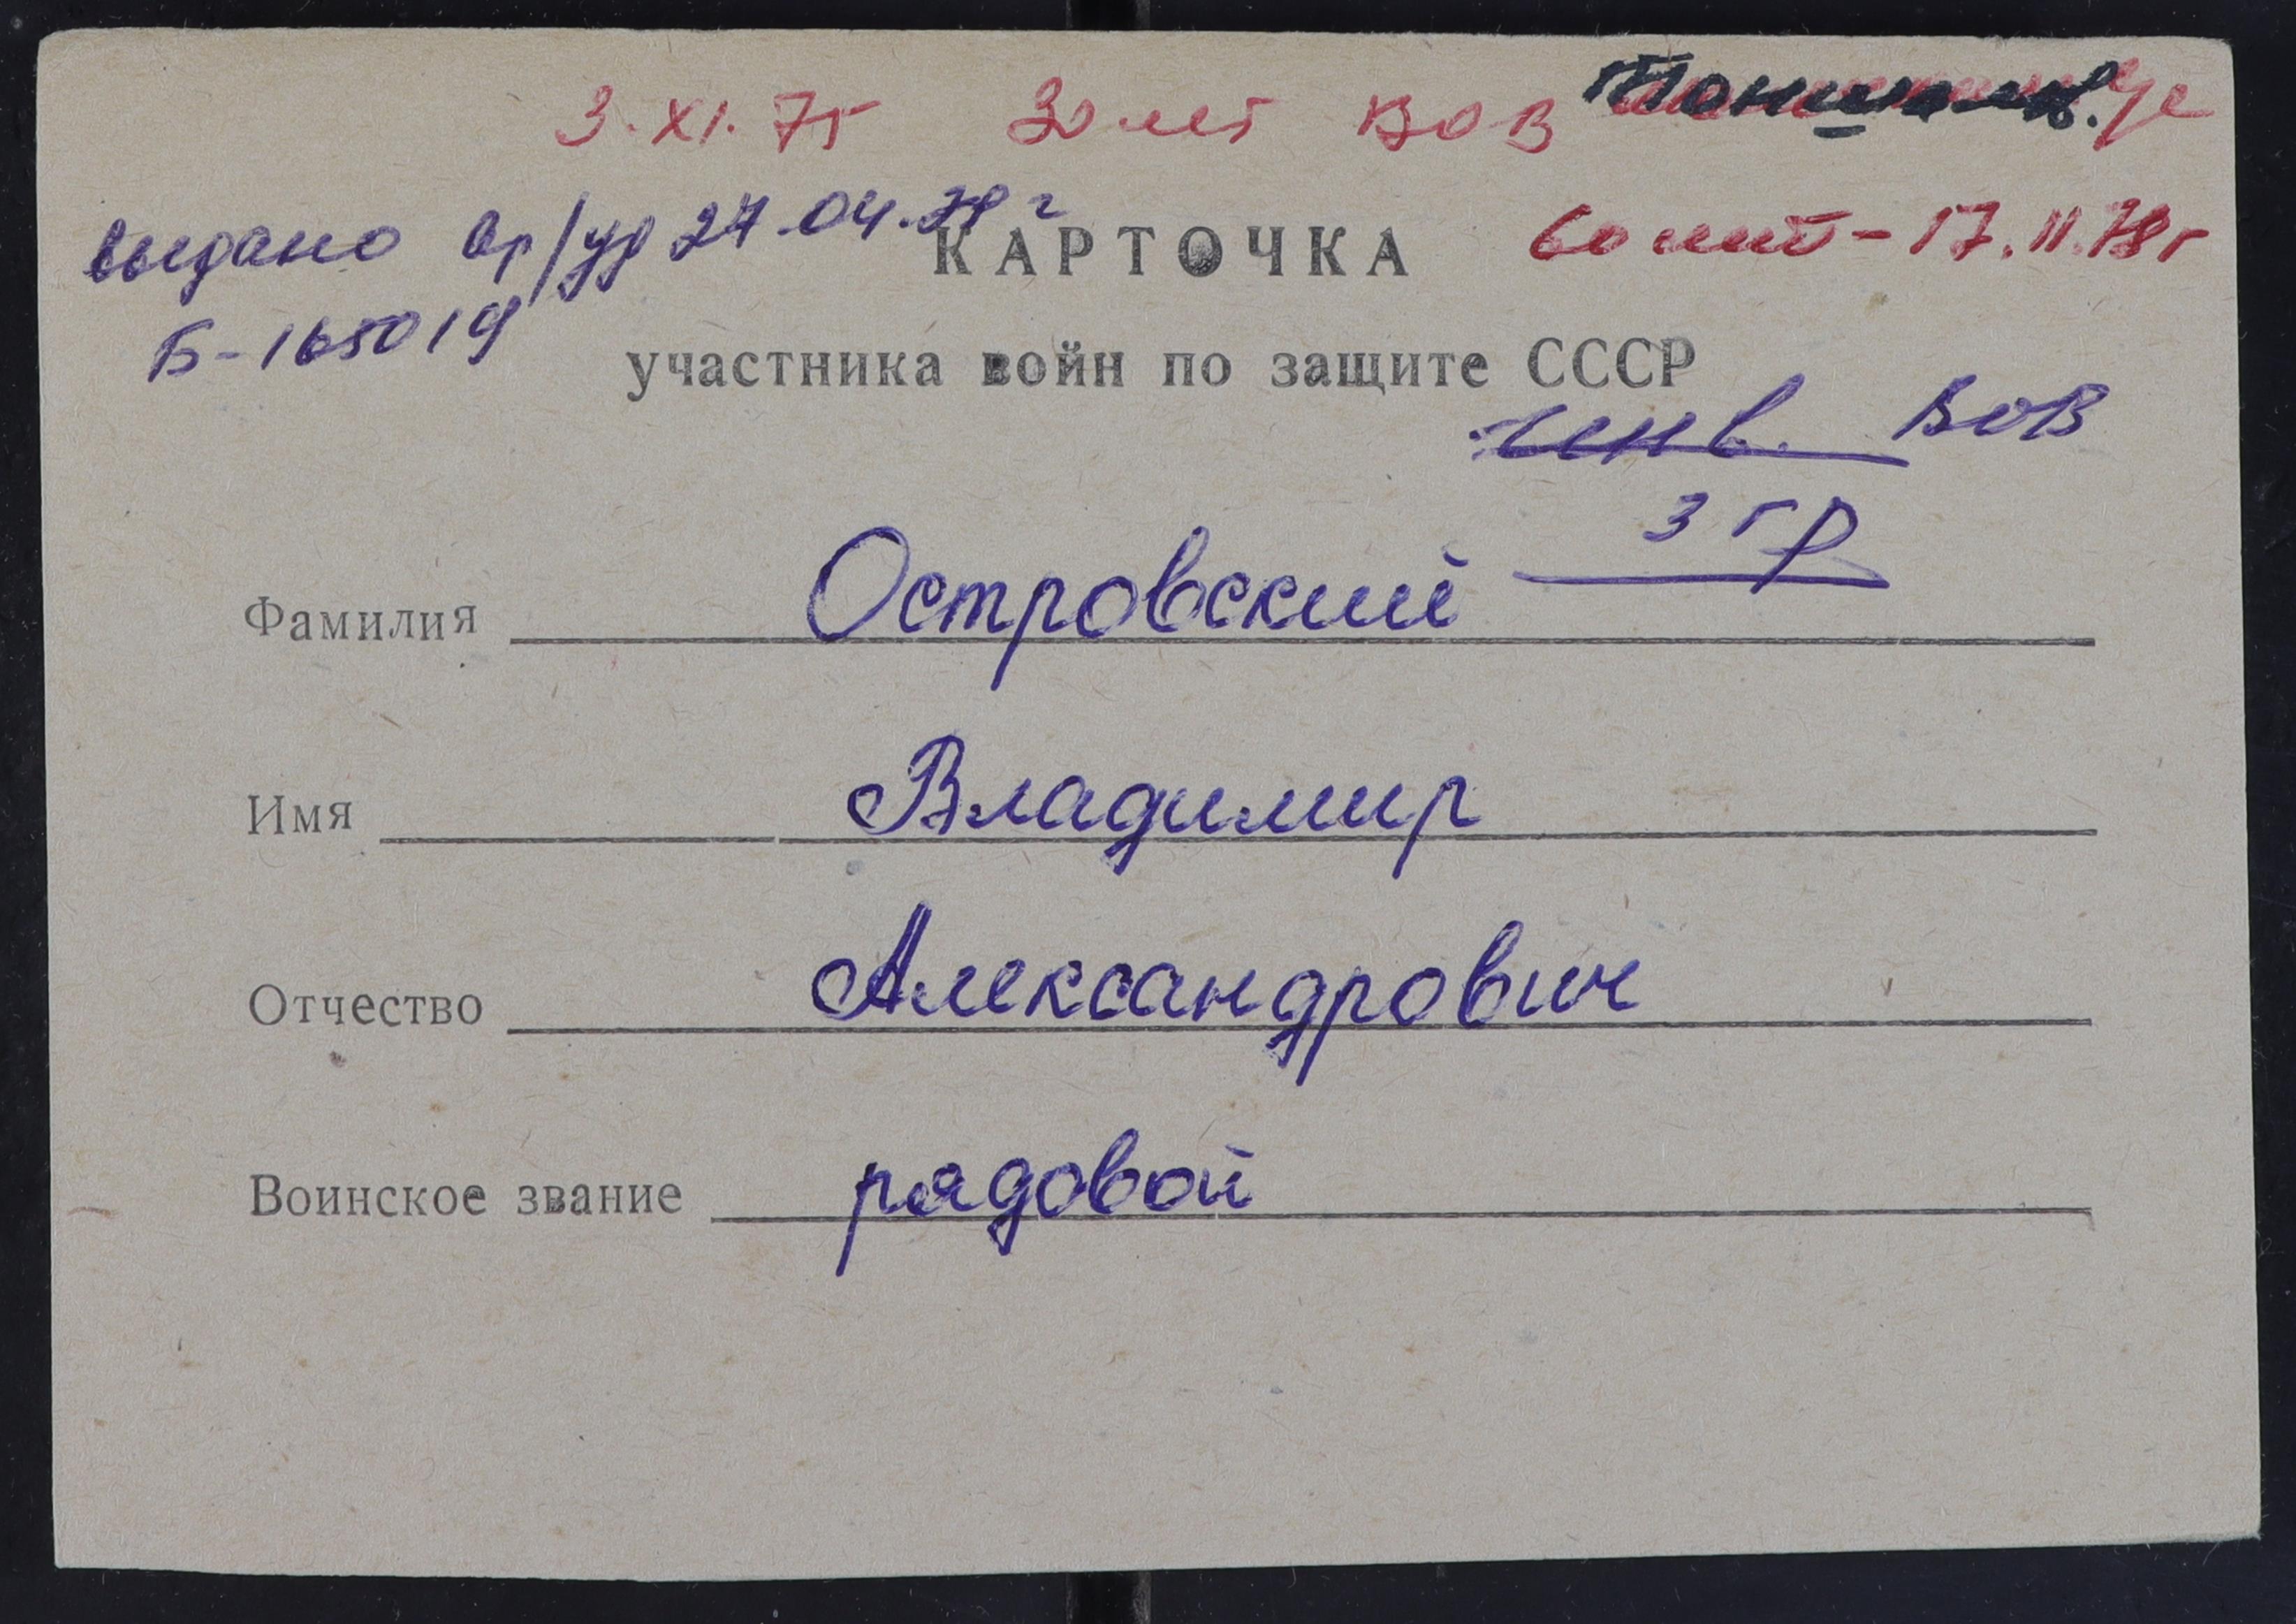 3.XI.75 30 лет ВОВ
выдано вр/уд 27.04.79 г
60 лет - 17.11.78 г
КАРТОЧКА
Б-165019
участника войн по защите СССР
инв. ВОВ
3 гр
Фамилия Островский
Имя Владимир
Отчество Александрович
Воинское звание рядовой